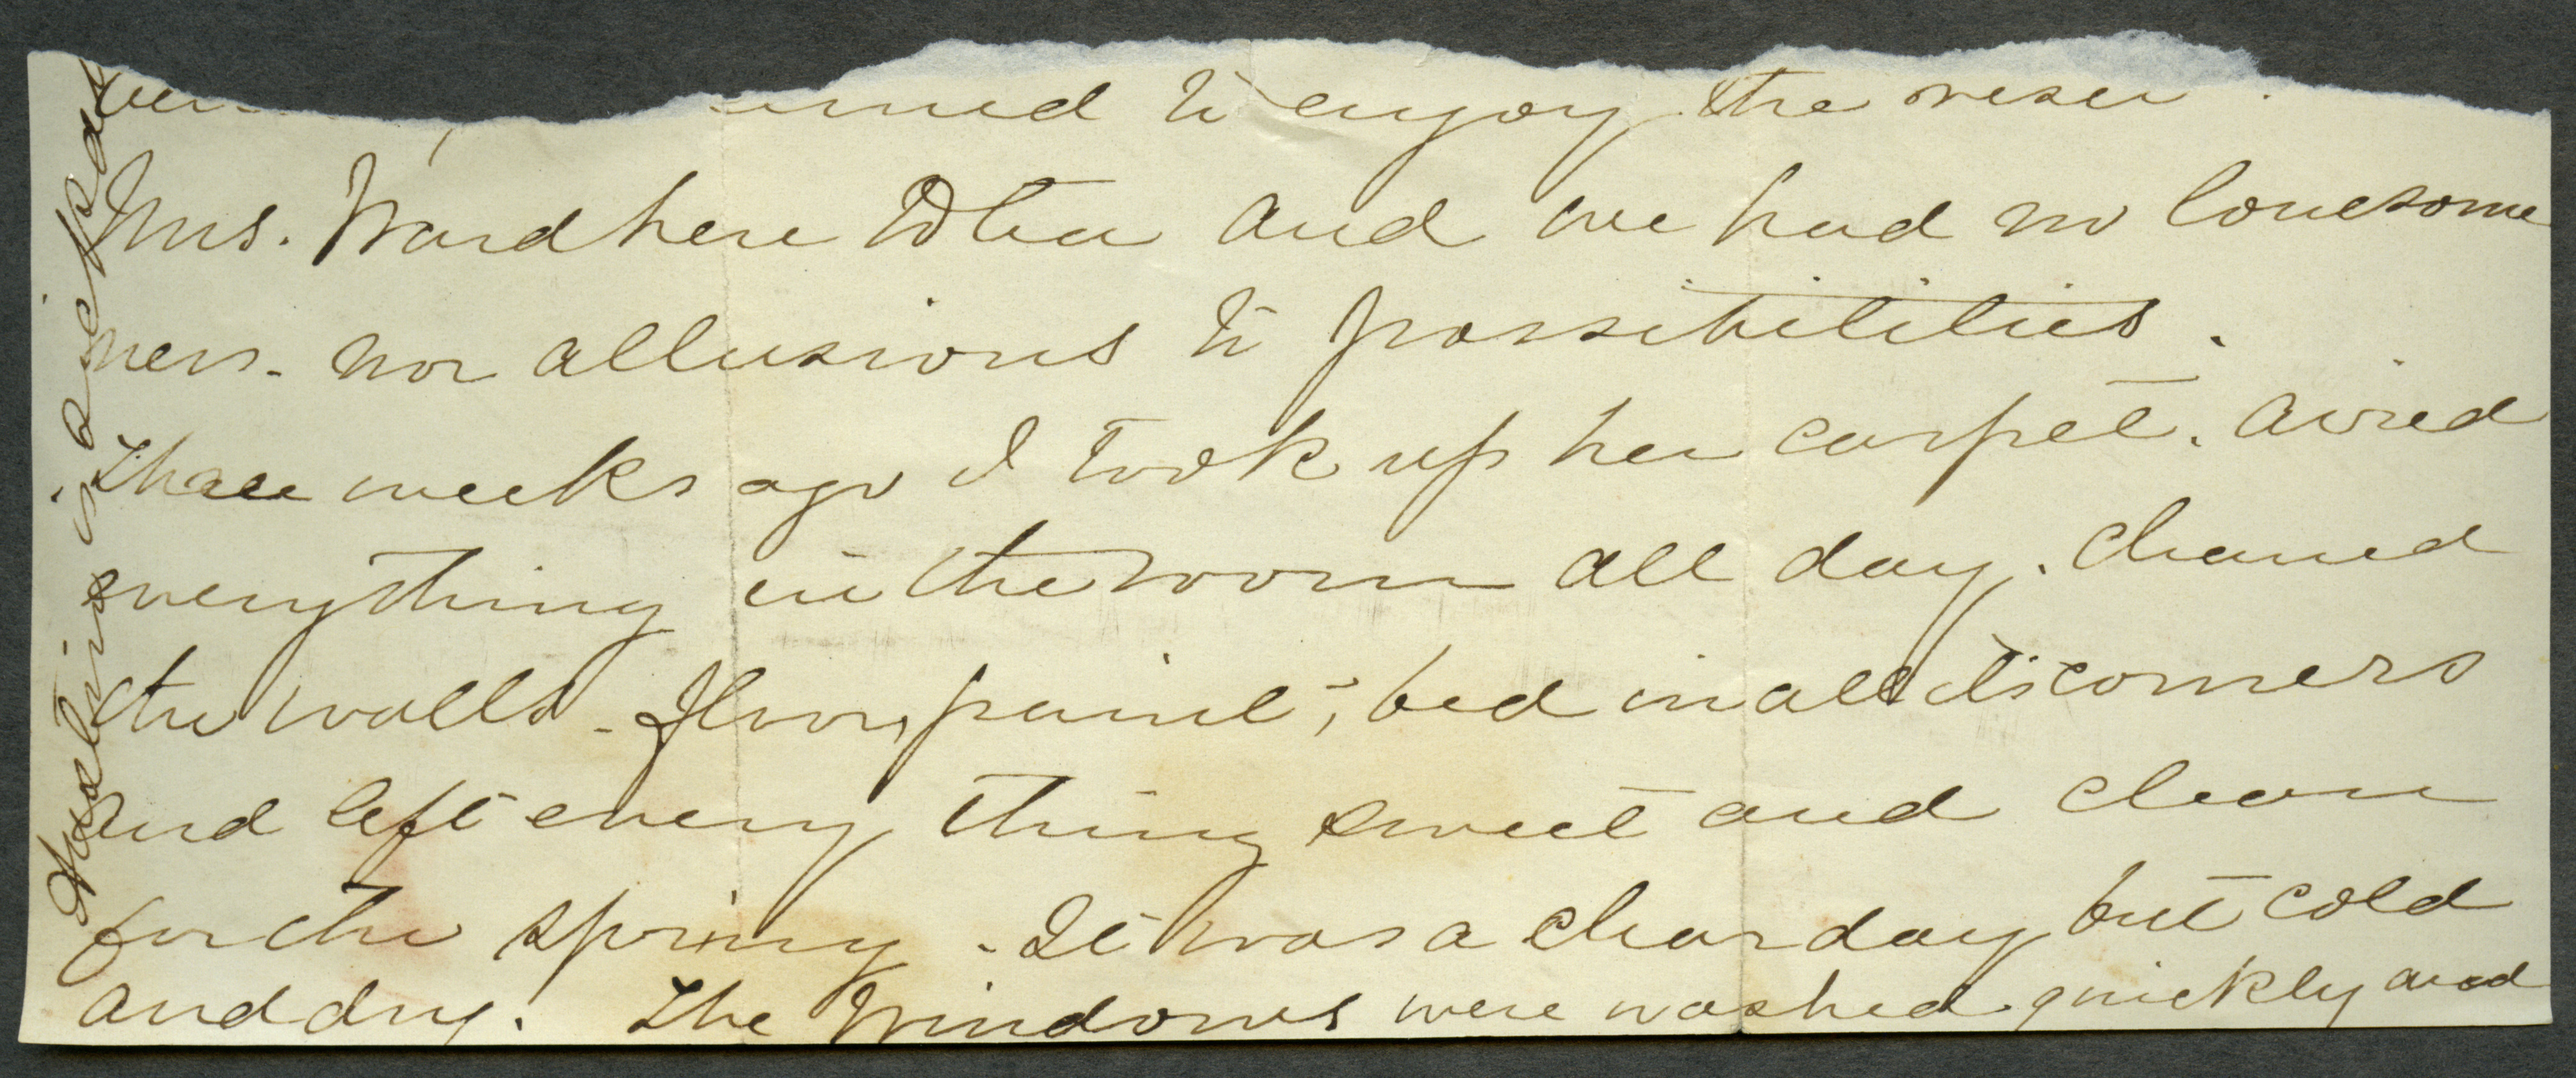 to enjoy the
Mrs. Ward here to tea and we had no lonesome
ness. nor allusions to possibilities.
Three weeks ago I took up her carpet. aired
everything in the room all day. Cleaned
the walls - floor, paint; bed in all its corners
and left every thing sweet and clean
for the spring - It was a clear day but cold
and dry. The Windows were washed quickly and
is a sick